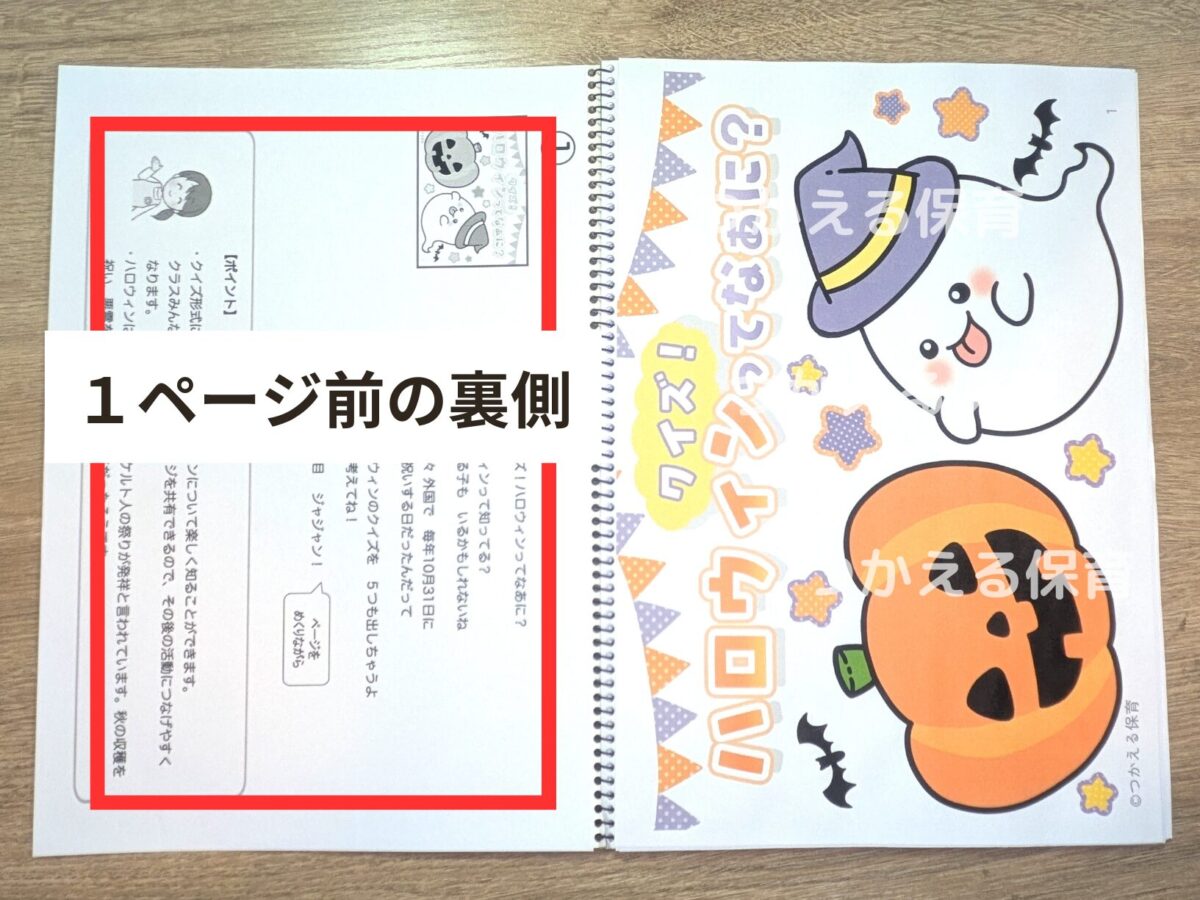 1ページ前の裏側
①
ハロウィンってなあに？
ズ！ハロウィンってなあに？
ィンって知ってる？
る子も いるかもしれないね
々 外国で 毎年10月31日に
祝いする日だったんだって
ウィンのクイズを 5つも出しちゃうよ
考えてね！
目 ジャジャン！
ページを
めくりながら
【ポイント】
・クイズ形式に ンについて楽しく知ることができます。
クラスみんな ジを共有できるので、その後の活動につなげやすく
なります。
・ハロウィンに ケルト人の祭りが発祥と言われています。秋の収穫を
クイズ！
ハロウィンってなあに？
1
©つかえる保育
かえる保育
つかえる保育